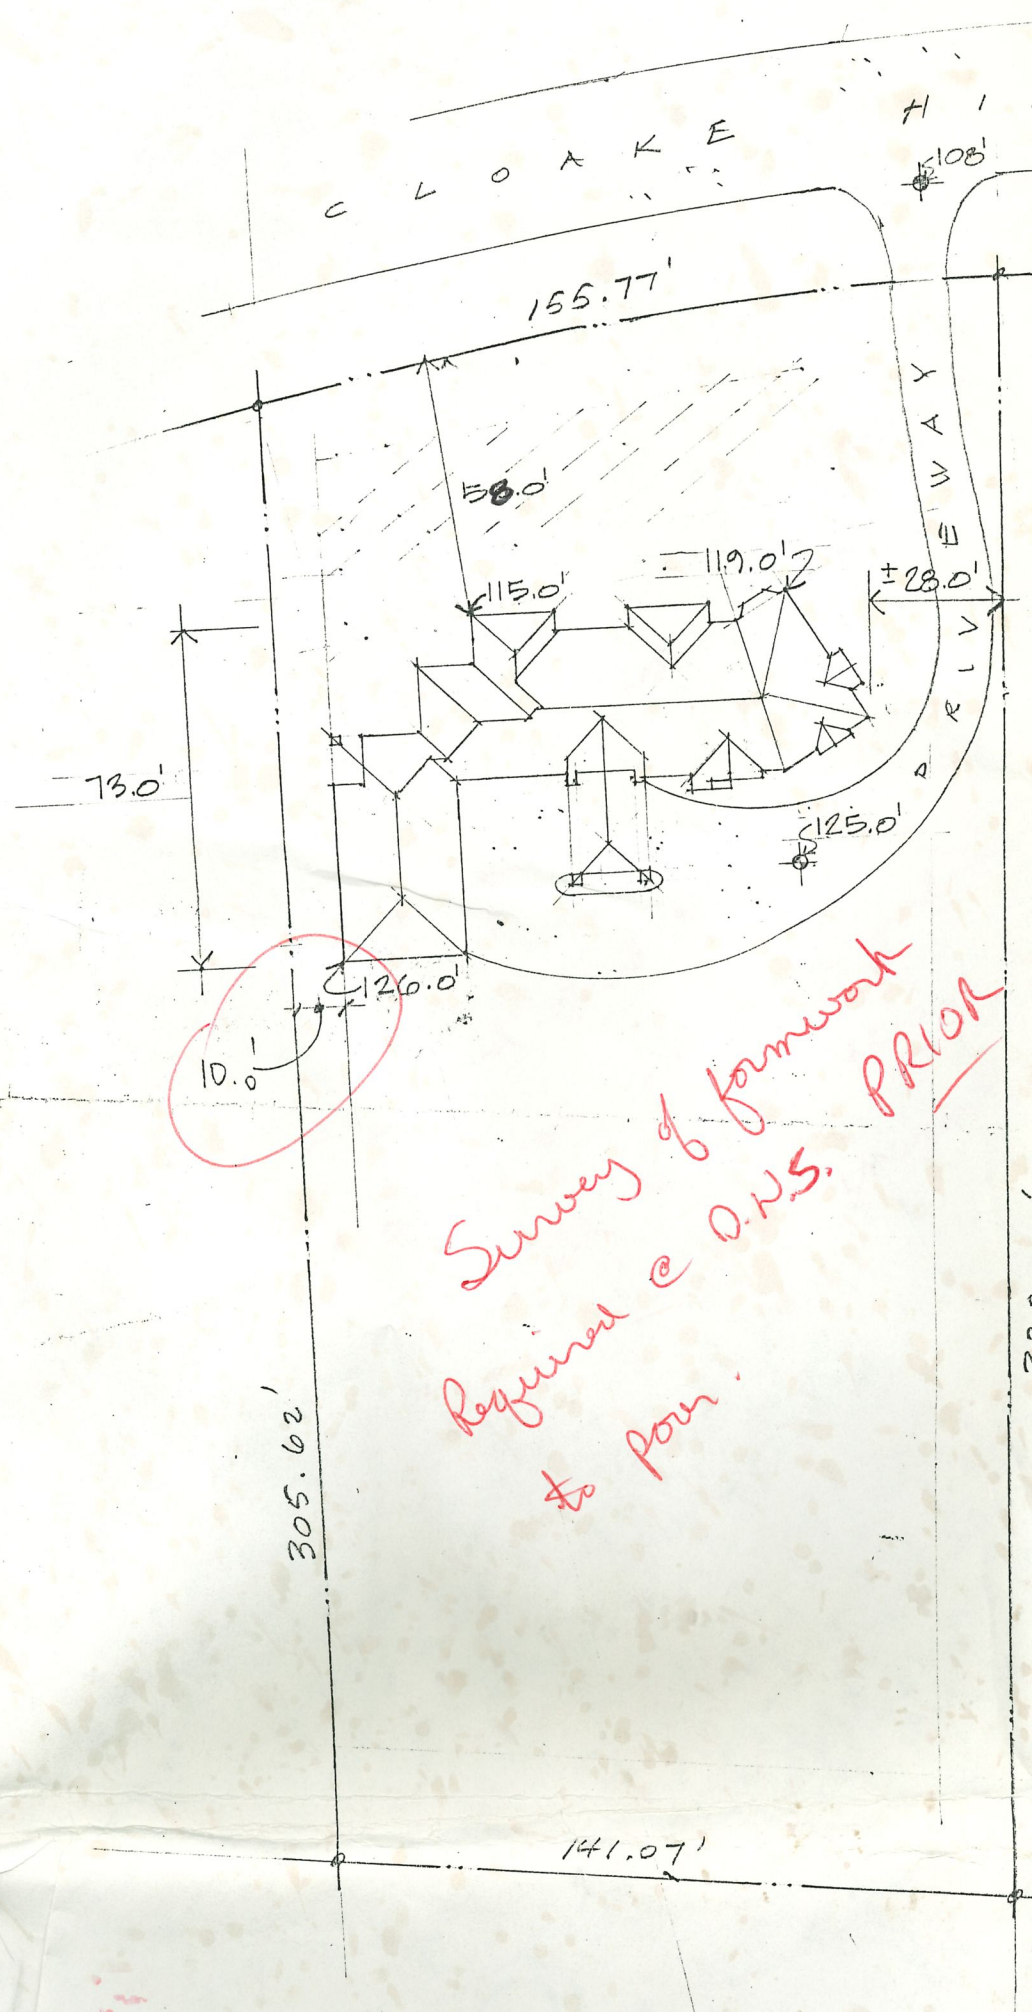 CLOAKE HI
108'
155.77'
58.0'
115.0'
119.0'
±28.0'
DRIVEWAY
73.0'
125.0'
126.0'
10.0'
Survey of formwork
Required @ D.N.S. PRIOR
to pour.
305.62'
141.07'